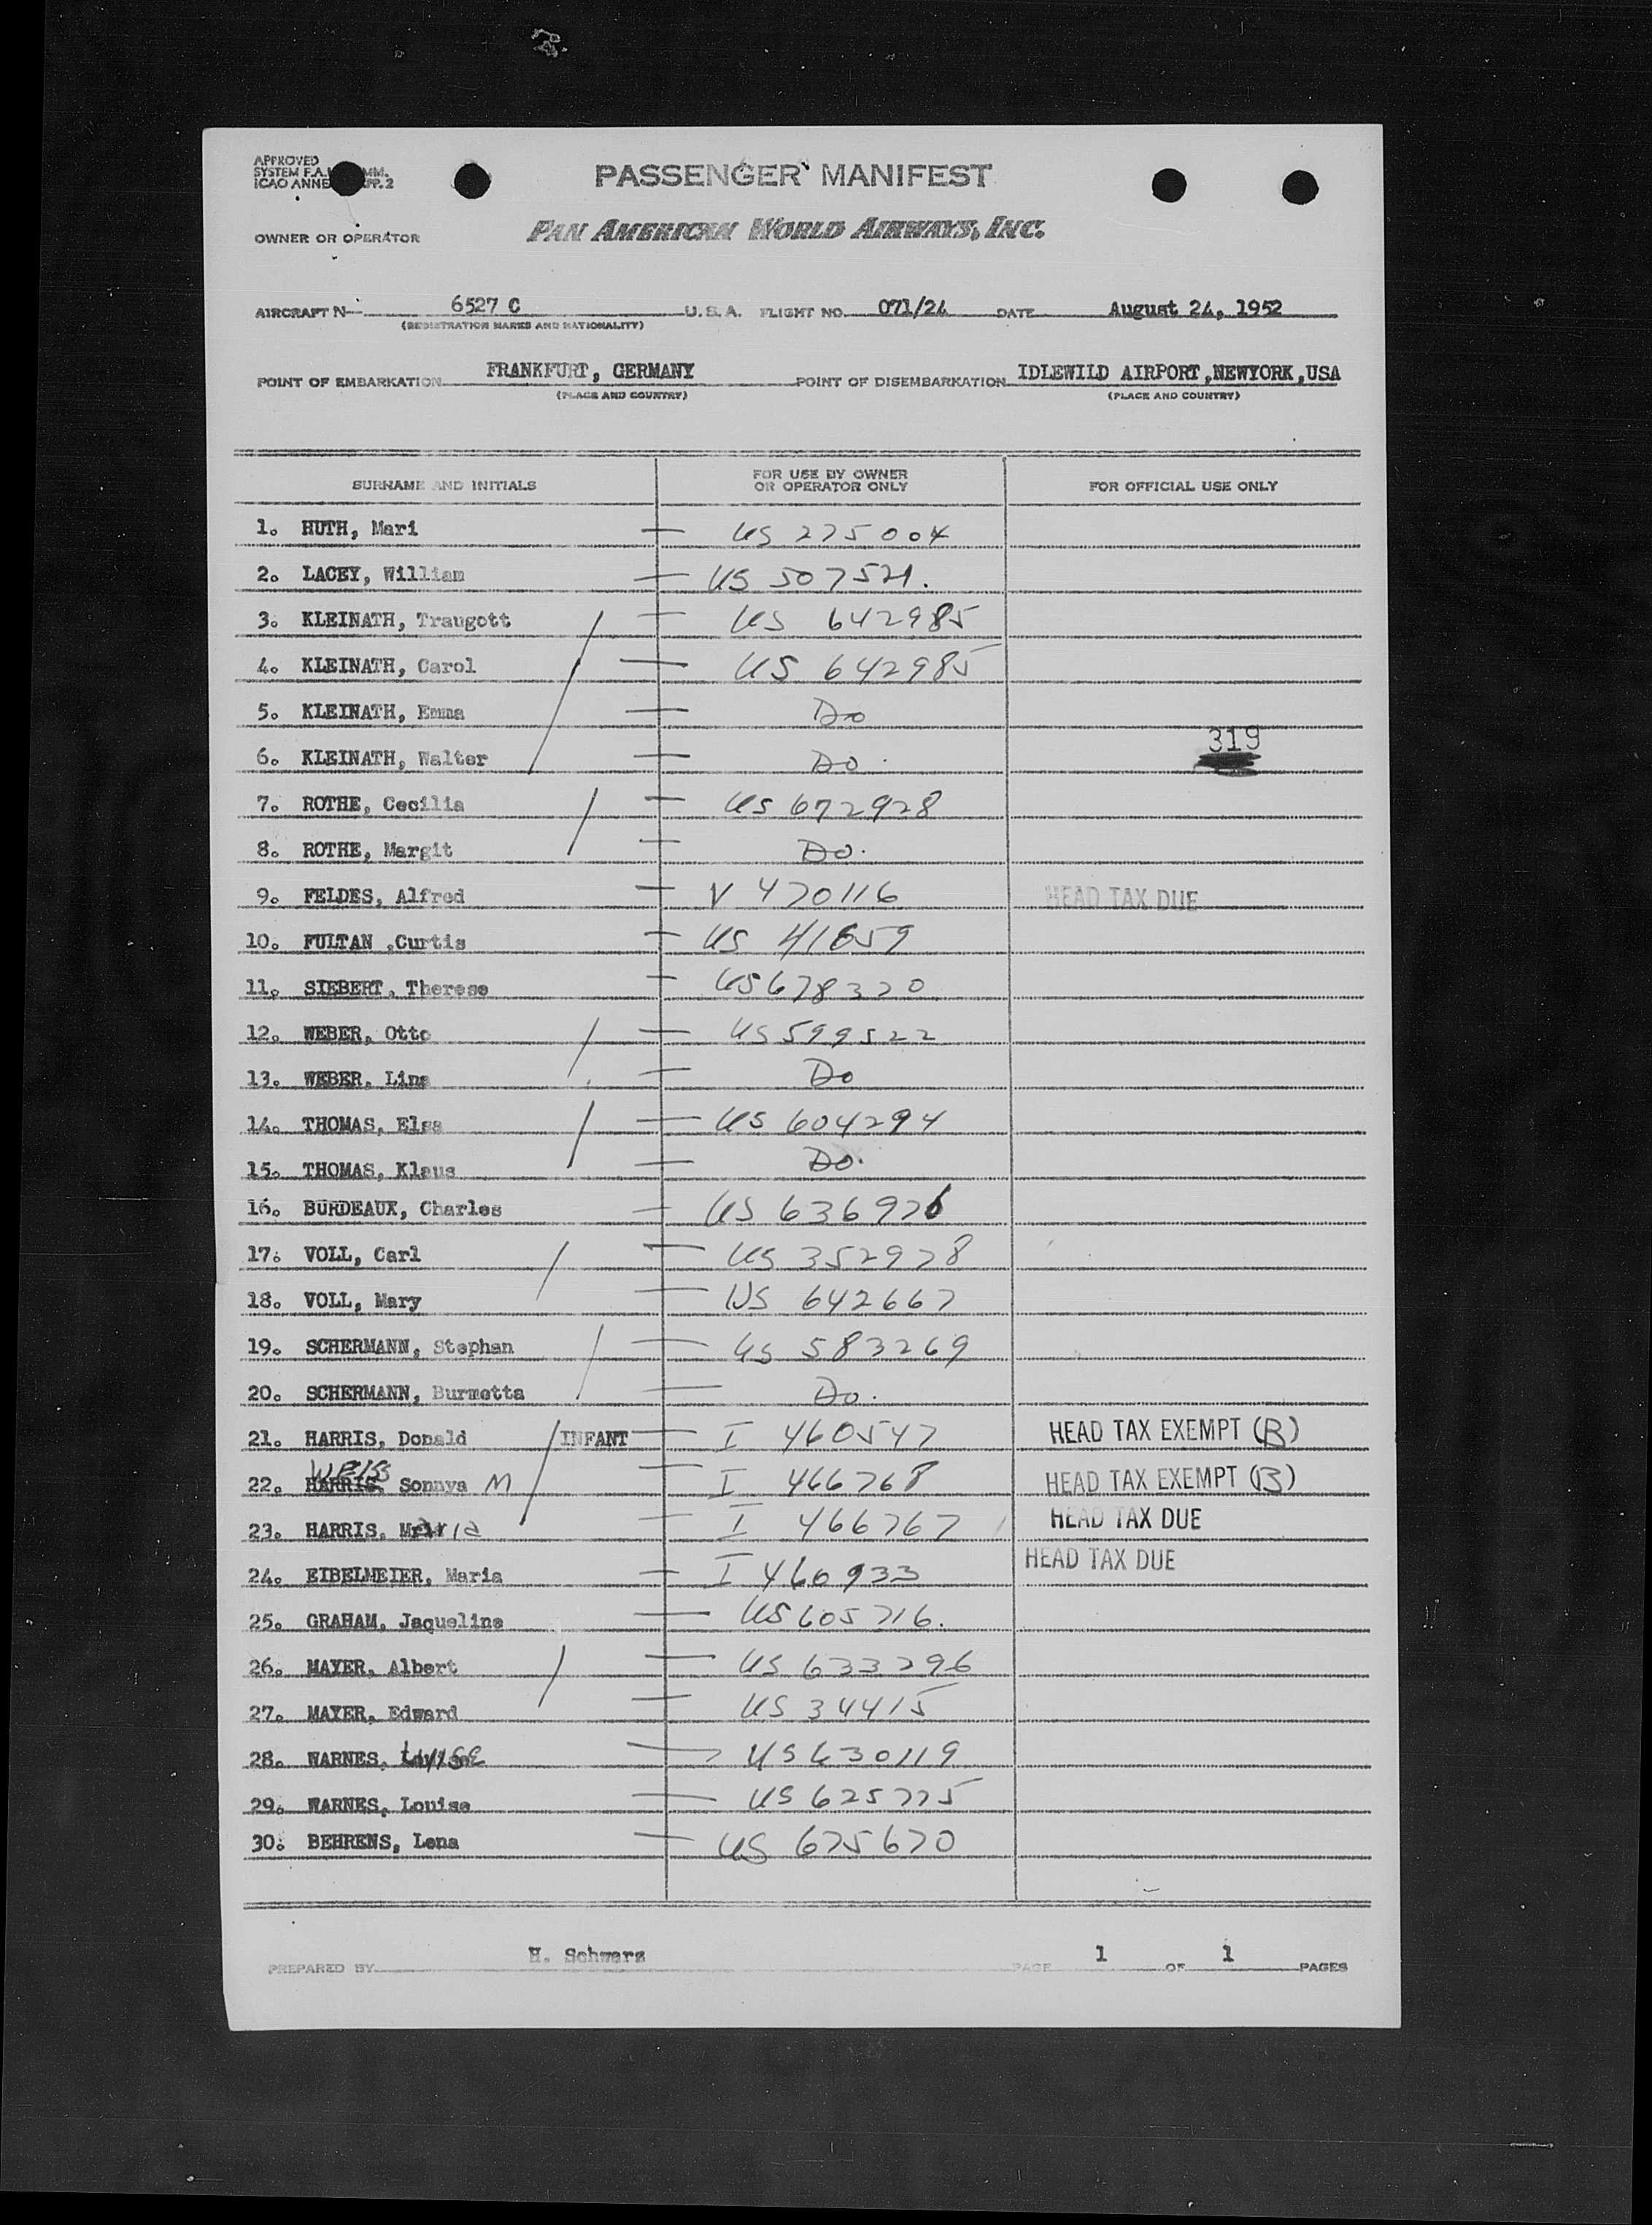 APPROVED
SYSTEM F.A.
ICAO ANNE
PASSENGER MANIFEST
OWNER OR OPERATOR
PAN AMERICAN WORLD AIRWAYS, INC.
AIRCRAFT N- 6527 C U.S.A. FLIGHT NO. 071/24 DATE August 24, 1952
(REGISTRATION MARKS AND NATIONALITY)
POINT OF EMBARKATION FRANKFURT, GERMANY POINT OF DISEMBARKATION IDLEWILD AIRPORT ,NEWYORK ,USA
(PLACE AND COUNTRY) (PLACE AND COUNTRY)
SURNAME AND INITIALS FOR USE BY OWNER OR OPERATOR ONLY FOR OFFICIAL USE ONLY
1. HUTH, Mari — US 275004
2. LACEY, William — US 507521.
3. KLEINATH, Traugott — US 642985
4. KLEINATH, Carol — US 642985
5. KLEINATH, Emma — Do
319
6. KLEINATH, Walter — Do.
7. ROTHE, Cecilia — US 672928
8. ROTHE, Margit — Do.
9. FELDES, Alfred — V 470116 HEAD TAX DUE
10. FULTAN ,Curtis — US 41659
11. SIEBERT, Therese — US 678320
12. WEBER, Otto — US 599522
13. WEBER, Lina — Do
14. THOMAS, Elsa — US 604294
15. THOMAS, Klaus — Do.
16. BURDEAUX, Charles — US 636926
17. VOLL, Carl — US 352978
18. VOLL, Mary — US 642667
19. SCHERMANN, Stephan — US 583269
20. SCHERMANN, Burmetta — Do.
21. HARRIS, Donald INFANT — I 460547 HEAD TAX EXEMPT (B)
22. HARRIS, Sonnya M — I 466768 HEAD TAX EXEMPT (B)
23. HARRIS, Maria — I 466767 HEAD TAX DUE
24. EIBELMEIER, Maria — I 460933 HEAD TAX DUE
25. GRAHAM, Jaqueline — US 605716.
26. MAYER, Albert — US 633296
27. MAYER, Edward — US 34415
28. WARNES, — US 630119
29. WARNES, Louise — US 625775
30. BEHRENS, Lena — US 675670
PREPARED BY H. Schwarz PAGE 1 OF 1 PAGES